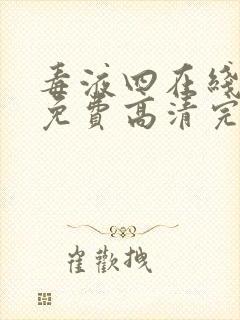 毒液四在线
免费高清完
崔欢拽